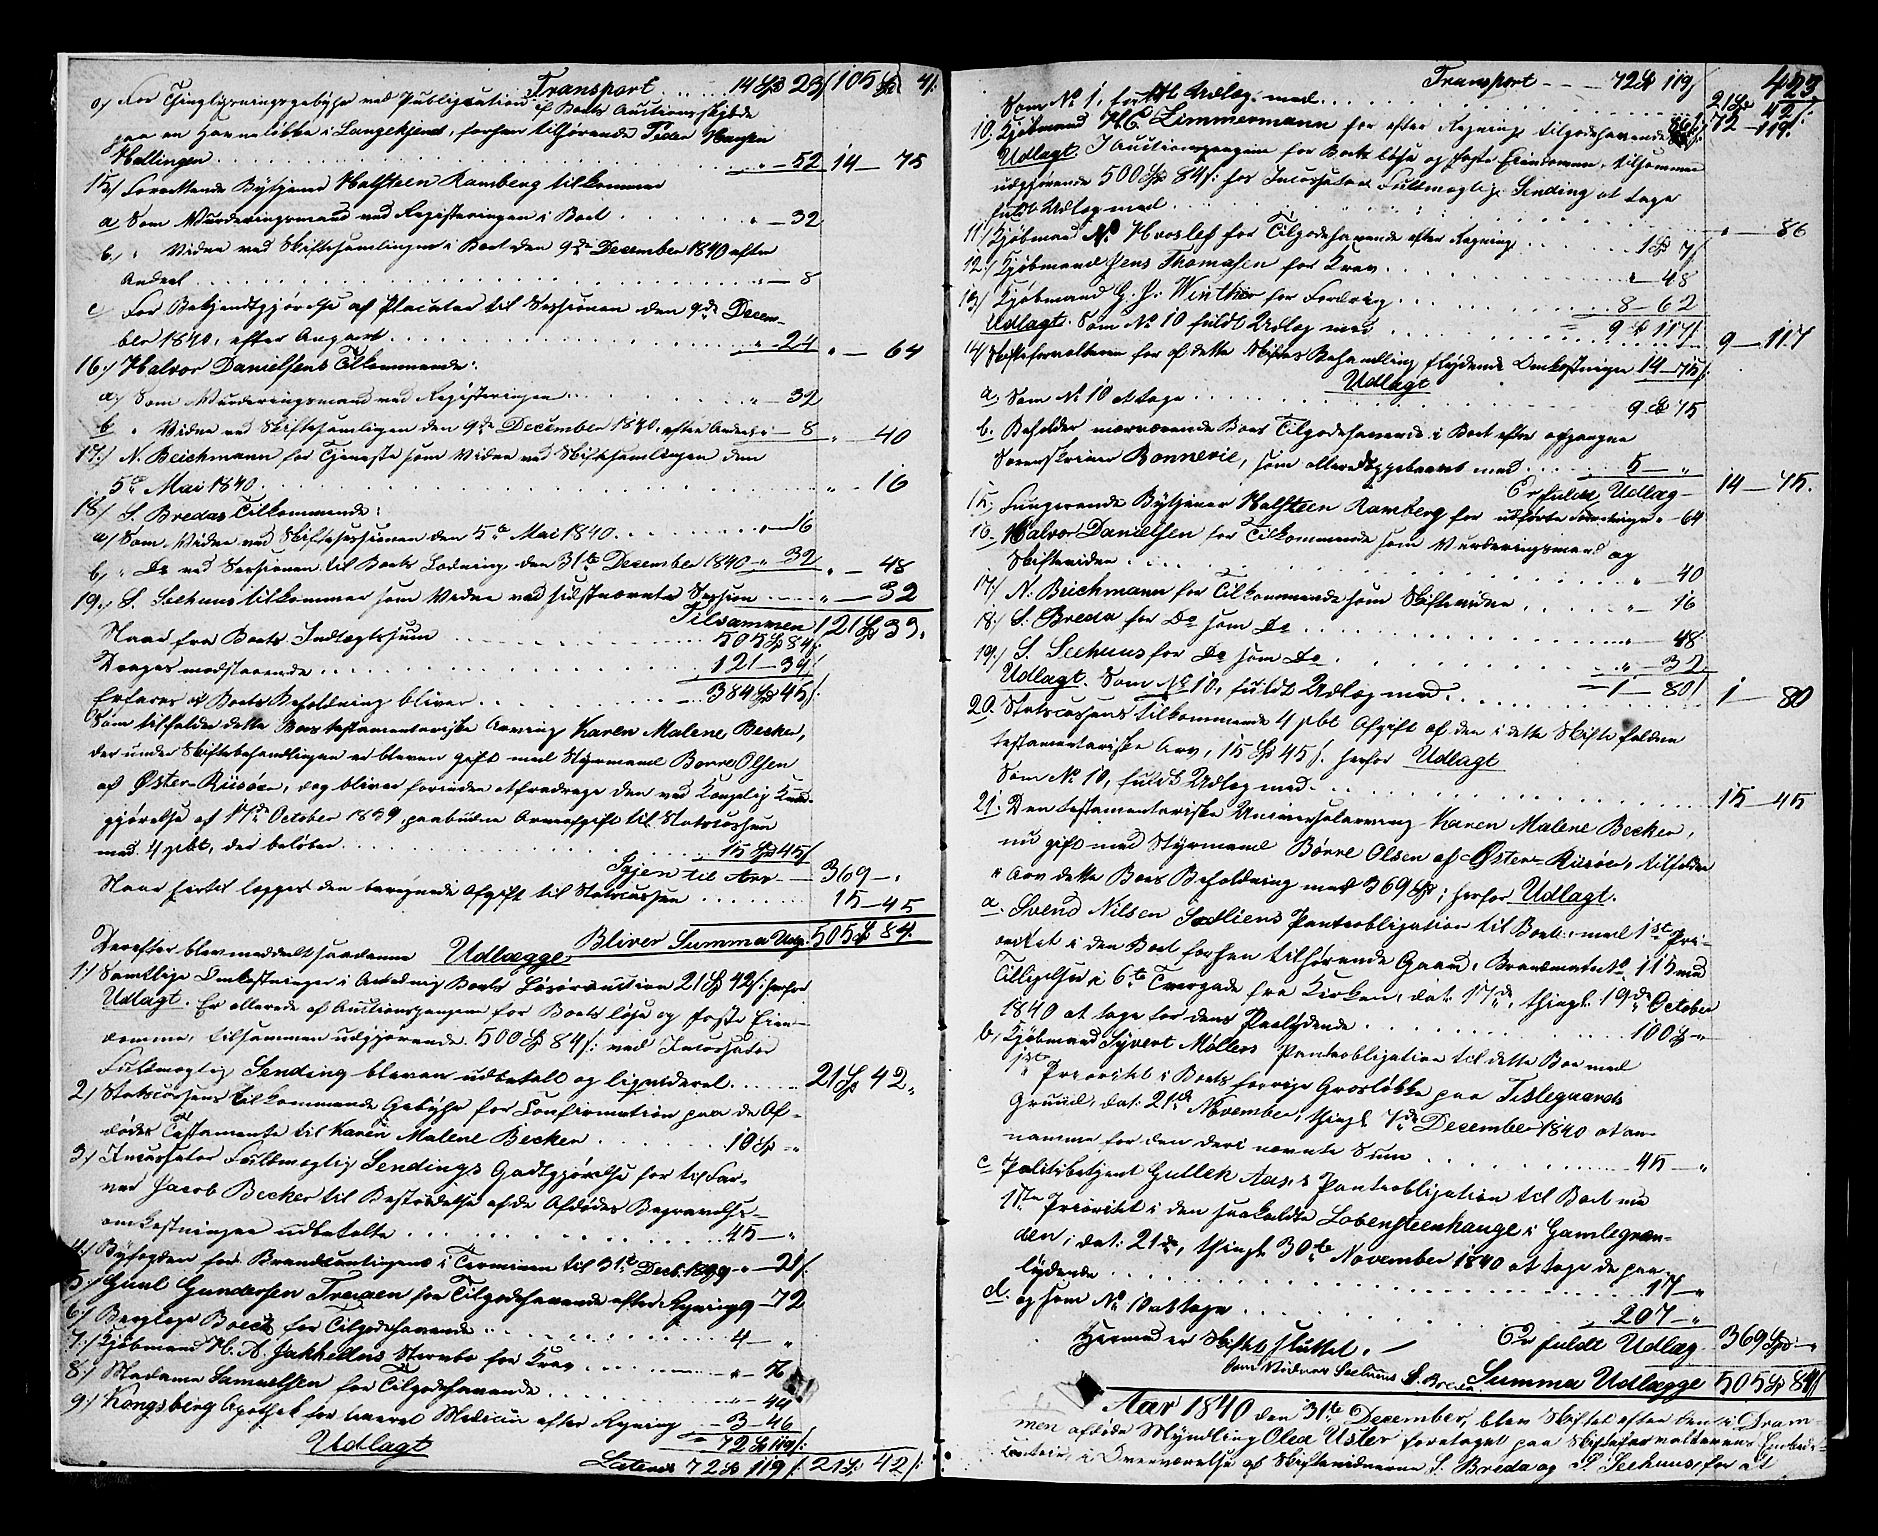 Transport . . . . 14 Spd 23 / 105 Spd 41.
o) For Thinglysningsgebyhr ved Publication af Boets Auctionsskjøde
paa en Havneløkke i Langekjend, forhen tilhørende Peder Hansen
Hallingen . . . . „ — 52 14 — 75
15,) Forrettende Bytjener Halfsteen Ramberg tilkommer
a Som Vurderingsmand ved Registeringen i Boet . . . . „ — 32
b, „ Vidne ved Skiftesamlingen i Boet den 9de December 1840 efter
Andeel . . . . „ — 8
c For Bekjendtgjørelse af Placater til Sessionen den 9de Decem-
ber 1840, efter Anpart . . . . „ 24 „ — 64
16,) Halvor Danielsens Tilkommende:
a, Som Vurderingsmand ved Registeringen . . . . „ — 32
b „ Vidne ved Skiftesamlingen den 9de December 1840, efter Andeel „ — 8 „ — 40
17,) N. Beichmann for Tjeneste som Vidne ved Skiftesamlingen den
5te Mai 1840 . . . . „ — 16
18,) S. Bredas Tilkommende:
a) Som Vidne ved Skiftesessionen den 5te Mai 1840 . . . . „ — 16
b, „ Do ved Sessionen til Boets Lodning den 31te December 1840 „ 32 „ — 48
19,) S. Seehuus tilkommer som Vidne ved sidstnævnte Session . . . . „ — 32
Tilsammen 121 Spd 39.
Naar fra Boets Indtægtssum . . . . 505 Spd 84
Drages modstaaende . . . . 121 — 39
Erfares at Boets Beholdning bliver . . . . 384 Spd 45 /:
Som tilfalder dette Boes testamentariske Arving Karen Malene Becker,
der under Skiftebehandlingen er bleven gift med Styrmand Børre Olsen
af Øster-Riisøer, dog bliver forinden at fradrage den ved Kongelig Kund-
gjørelse af 17de October 1839 paabudne Arveafgift til Statscassen
med 4 pct, der beløber . . . . 15 Spd 45 /
Igjen til Arv — 369 — „
Naar hertil lægges den beregnede Afgift til Statscassen . . . . 15 — 45
Bliver Summa Udg. 505 Spd 84.
Derefter blev meddelt saadanne Udlægge
1,) Samtlige Omkostninger i Anledning Boets Løsøreauction 21 Spd 42 /: herfor
Udlagt. Er allerede af Auctionspengene for Boets løse og faste Eien-
domme, tilsammen udgjørende 500 Spd 84 /: ved Incassator
Fuldmægtig Sending bleven udbetalt og liqvideret . . . . 21 Spd 42 „
2,) Statscassens tilkommende Gebyhr for Confirmation paa de Af-
dødes Testamente til Karen Malene Becker . . . . 10 Spd „
3,) Incassator Fuldmægtig Sendings Godtgjørelse for til Far-
ver Jacob Becker til Bestridelse af de Afdødes Begravelses-
omkostninger udbetalte . . . . 45 — „
4,) Byfogden for Brandcontingent i Terminen til 31te Decb. 1839 „ — 21 /:
5,) Gunl Gundersen Treiden for Tilgodehavende efter Regning 9 — 72
6,) Berglege Boeck for Tilgodehavende . . . . 4 — „
7,) Kjøbmand H. A. Jakhellns Sterbo for Krav . . . . „ — 76
8,) Madame Samuelsen for Tilgodehavende . . . . „ — 44
9,) Kongsberg Apothek for leveret Medicin efter Regning . . . . 3 — 46
72 Spd 119 /:
Udlagt
Lateris 72 Spd 119 /: 21 Sp. 42 /:
Transport — — 72 Spd 119 / 423
Som No 1, fuldt Udlæg med . . . . 21 Spd 42 /:
72 — 119
10. Kjøbmand H. C. Zimmermann for efter Regning tilgodehavende 86 /:
Udlagt. I Auctionspengene for Boets løse og faste Eiendomme, tilsammen
udgjørende 500 Spd 84 /: hos Incassator Fuldmægtig Sending at tage
fuldt Udlæg med . . . . „ — 86
11,) Kjøbmand N. Hvoslef for Tilgodehavende efter Regning . . . . 1 Spd 7 /
12,) Kjøbmand Jens Thomasen for Krav . . . . „ — 48
13,) Kjøbmand G. P. Winther for Fordring . . . . 8 — 62
Udlagt. Som No 10 fuldt Udlæg med . . . . 9 Spd 117 / 9 — 117
14,) Skifteforvalteren for af dette Skiftes Behandling flydende Omkostninger 14 — 75 /:
Udlagt
a, Som No 10 at tage . . . . 9 Spd 75
b. Beholder nærværende Boes Tilgodehavende i Boet efter afgangne
Sorenskriver Bonnevie, som allerede oppebaaret med . . . . 5 — „
Er fuldt Udlæg — 14 — 75.
15, Fungerende Bytjener Halfsteen Ramberg for udførte Forretninger „ — 64
16. Halvor Danielsen for Tilkommende som Vurderingsmand og
Skiftevidne . . . . „ — 40
17,) N. Beichmann for Tilkommende som Skiftevidne . . . . „ — 16
18,) S. Breda for Do som Do . . . . „ — 48
19,) S. Seehuus for Do som Do . . . . „ — 32
Udlagt. Som No 10, fuldt Udlæg med . . . . 1 — 80 / 1 — 80
20. Statscassens tilkommende 4 pct Afgift af den i dette Skifte faldne
testamentariske Arv, 15 Spd 45 /. herfor Udlagt
Som No 10, fuldt Udlæg med . . . . 15 — 45
21. Den testamentariske Universalarving Karen Malene Becker,
nu gift med Styrmand Børre Olsen af Øster-Riisøer, tilfalder
i Arv dette Boes Beholdning med 369 Spd; herfor Udlagt.
a. Svend Nilsen Sætliens Panteobligation til Boet, med 1ste Pri-
oritet i den Boet forhen tilhørende Gaard, Brandmatr. No 115 med
Tilliggelse i 6te Tvergade fra Kirken, dat. 17de, thingl. 19de October
1840 at tage for dens Paalydende . . . . 100 Spd „
b, Kjøbmand Syvert Møllers Panteobligation til dette Boe med
1ste Prioritet i Boets forrige Græsløkke paa Tislegaards
Grund, dat: 21de November, thingl. 7de December 1840 at an-
namme for den deri nævnte Sum . . . . 45 — „
c Politibetjent Gullek Aas's Panteobligation til Boet med
1ste Prioritet i den saakaldte Lobensteenhauge i Gamlegren-
den; dat: 21de, thingl. 30te November 1840 at tage de paa-
lydende . . . . 17 — „
d. og som No 10 at tage . . . . 207 — „
Er fuldt Udlæg 369 Spd „
Hermed er Skiftet sluttet. —
Som Vidner Seehuus S. Breda Summa Udlægge 505 Spd 84 /
Aar 1840 den 31te December, blev Skiftet efter den i Dram-
men afdøde Myndling Olea Usler foretaget paa Skifteforvalterens Embeds-
contoir, i Overværelse af Skiftevidnerne S. Breda og S. Seehuus, for at